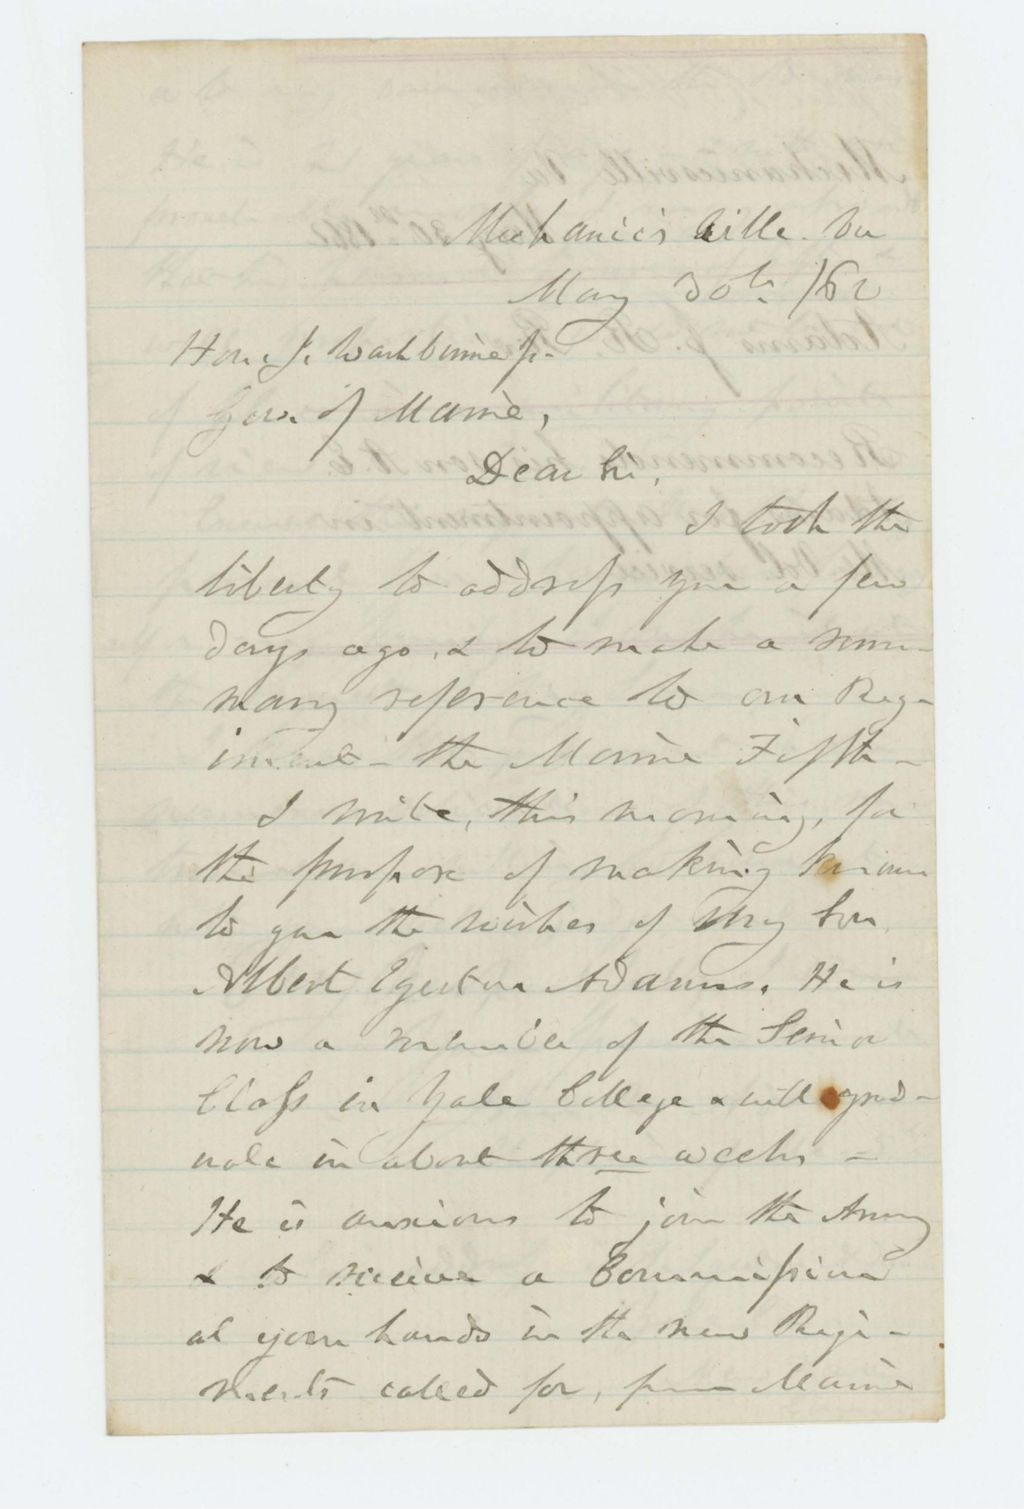 Mechanic's Ville. Va
May 30th /62
Hon. I. Washburne jr.
Gov. of Maine,
Dear Sir,
I took the
liberty to addrefs you a few
days ago, & to make a sum-
mary reference to our Reg-
iment - the Maine Fifth -
I write, this morning, for
the purpose of making known
to you the wishes of My Son,
Albert Egerton Adams. He is
now a member of the Senior
Clafs in Yale College & will grad-
uate in about three weeks -
He is anxious to join the Army
& to receive a Commifsion
at your hands in the new Regi-
ments called for, from Maine